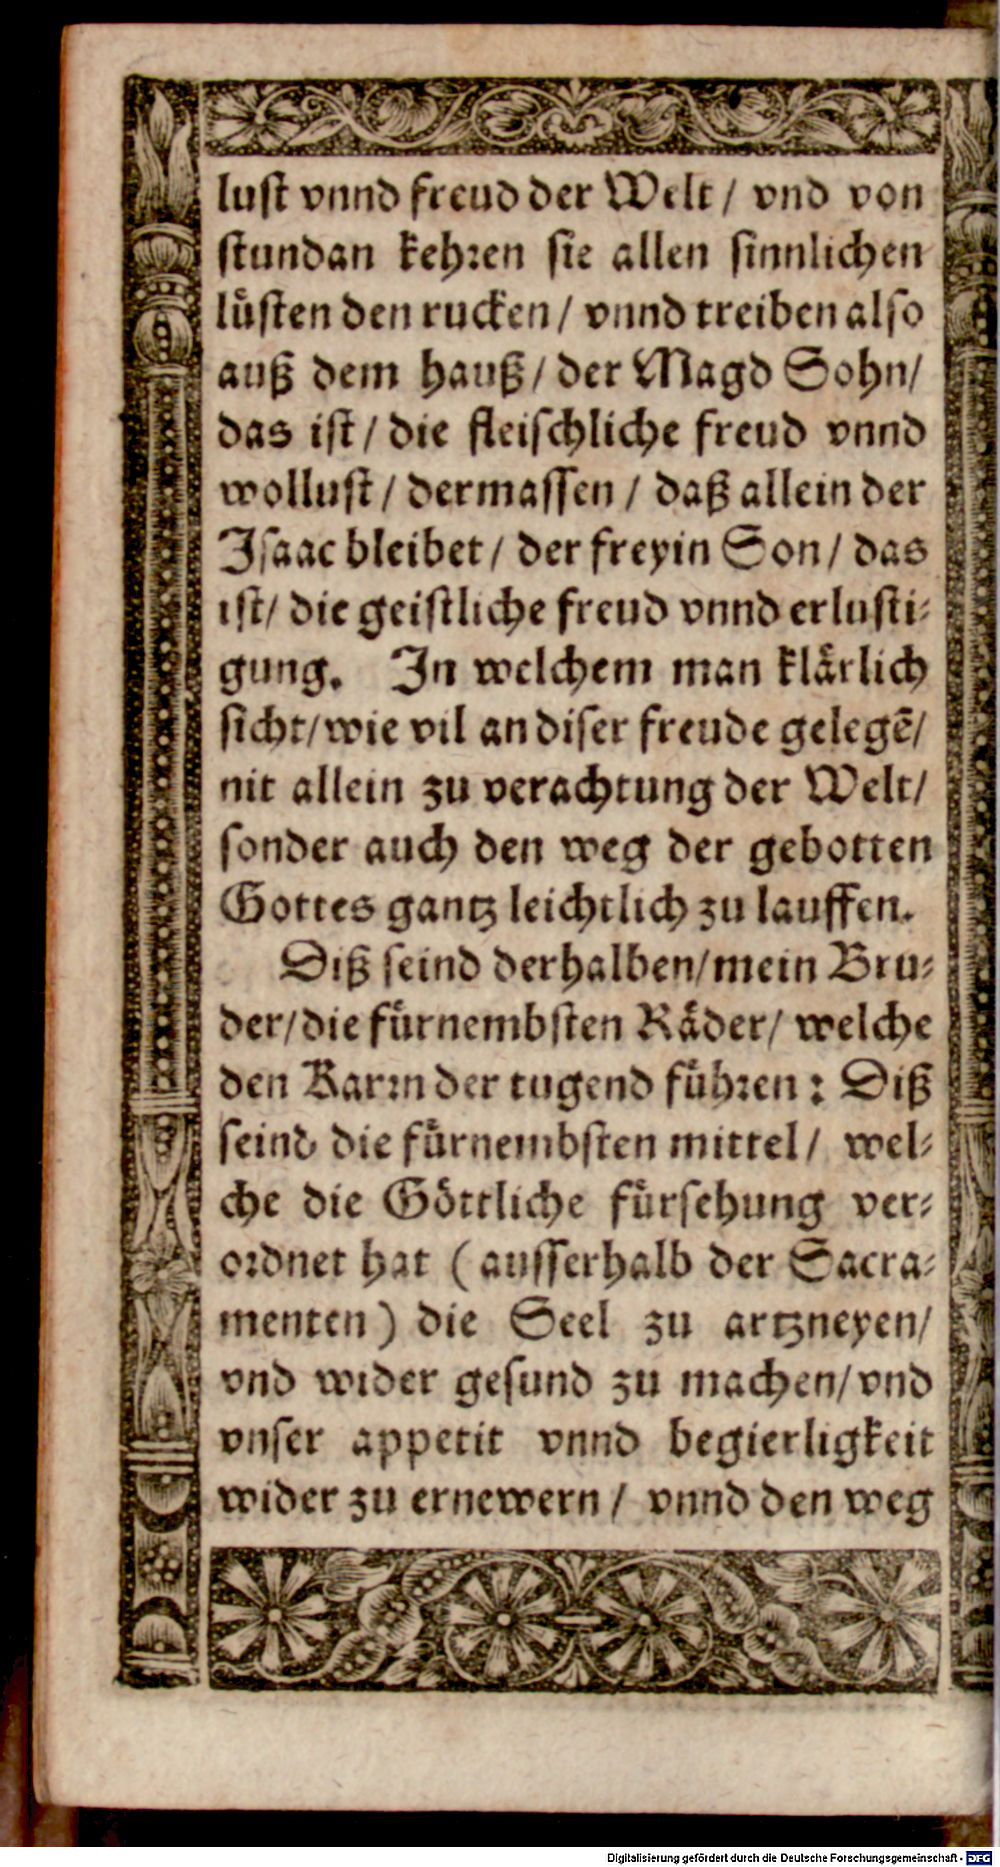 lust vnnd freud der Welt / vnd von
stundan kehren sie allen sinnlichen
lůsten den rucken / vnnd treiben also
auß dem hauß / der Magd Sohn /
das ist / die fleischliche freud vnnd
wollust / dermassen / daß allein der
Isaac bleibet / der freyin Son / das
ist / die geistliche freud vnnd erlusti⸗
gung. In welchem man klaͤrlich
sicht / wie vil an diser freude gelegẽ /
nit allein zu verachtung der Welt /
sonder auch den weg der gebotten
Gottes gantz leichtlich zu lauffen.
Diß seind derhalben / mein Bru⸗
der / die fůrnembsten Raͤder / welche
den Karrn der tugend fůhren : Diß
seind die fůrnembsten mittel / wel⸗
che die Goͤttliche fůrsehung ver⸗
ordnet hat ( ausserhalb der Sacra⸗
menten ) die Seel zu artzneyen /
vnd wider gesund zu machen / vnd
vnser appetit vnnd begierligkeit
wider zu ernewern / vnnd den weg
Digitalisierung gefördert durch die Deutsche Forschungsgemeinschaft - DFG